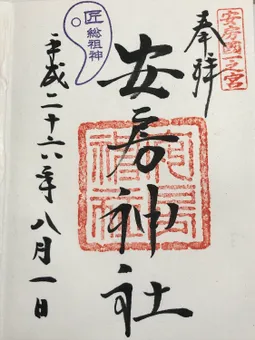 安房國一之宮
奉拝
安房神社
匠総祖神
平成二十六年八月一日